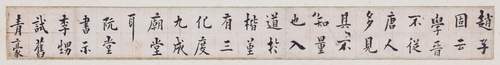 趙子
固云
學晉
不從
唐人
多見
其不
知量
也入
道於
楷堇
有三
化度
九成
廟堂
耳
阮堂
書示
李甥
試舊
青豪